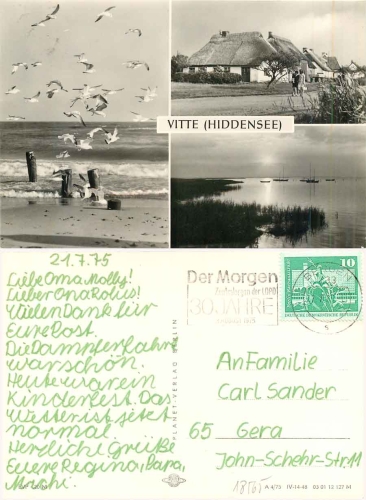 VITTE (HIDDENSEE)
21.7.75
Liebe Oma Molly!
Lieber Opa Robis!
Vielen Dank für
Eure Post.
Die Dampferfahrt
war schön.
Heute war ein
Kinderfest. Das
Wetter ist jetzt
normal.
Herzliche Grüße
Eure Regina, Papa,
PLANET-VERLAG BERLIN
Der Morgen
Zentralorgan der LDPD
30 JAHRE
10
DEUTSCHE DEMOKRATISCHE REPUBLIK
An Familie
Carl Sander
65 Gera
John-Schehr-Str. 11
A 4/75 IV-14-46